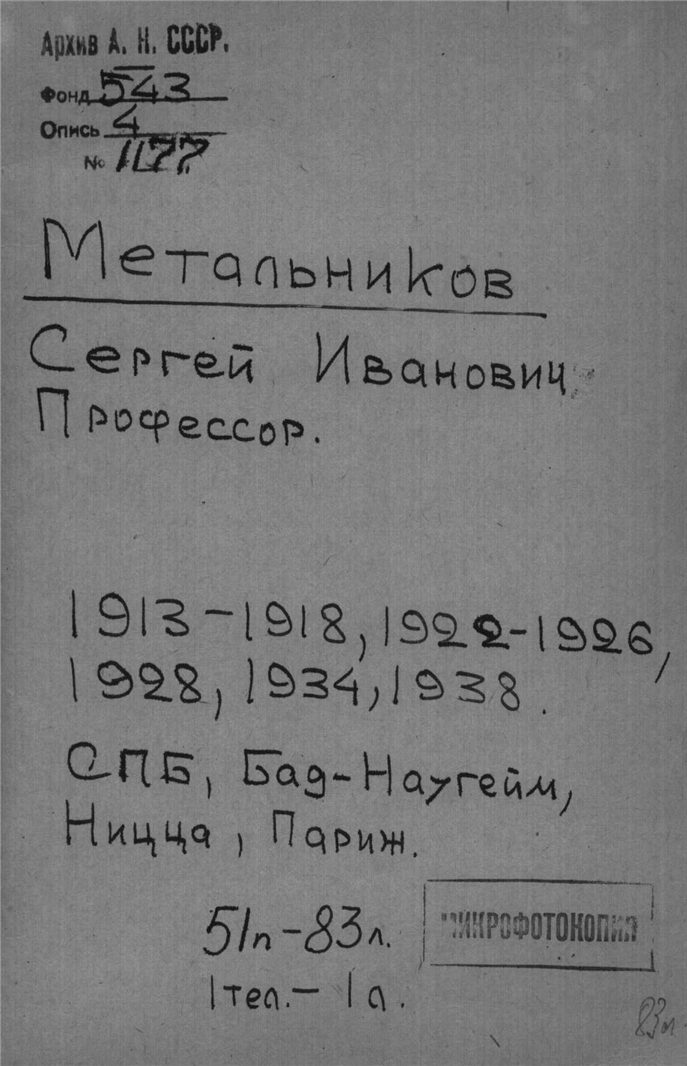 Архив А. Н. СССР.
Фонд 543
Опись 4
№ 1177
Метальников
Сергей Иванович
Профессор.
1913-1918, 1922-1926,
1928, 1934, 1938.
СПБ, Бад-Наугейм,
Ницца, Париж.
51п-83л.
1тел.- 1л.
МИКРОФОТОКОПИЯ
83л